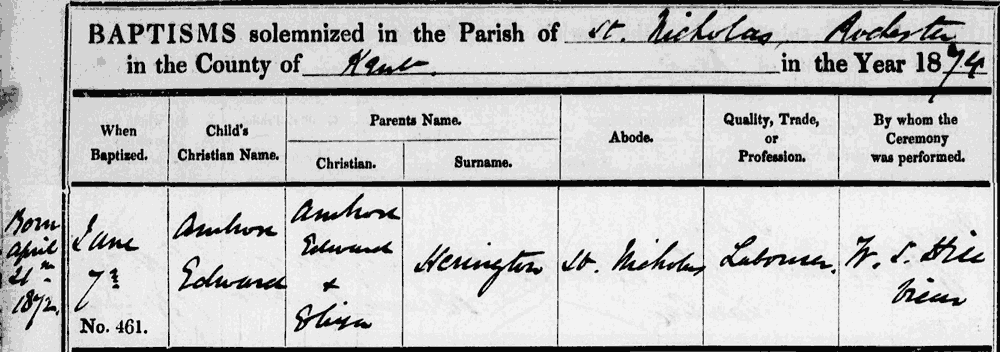 BAPTISMS solemnized in the Parish of St. Nicholas, Rochester
in the County of Kent. in the Year 1874
When Baptized.
Child's Christian Name.
Parents Name.
Christian.
Surname.
Abode.
Quality, Trade, or Profession.
By whom the Ceremony was performed.
Born
April
21st
1872.
June
7th
No. 461.
Ambrose
Edward
Ambrose
Edward
&
Eliza
Herington
St. Nicholas
Labourer.
W. S.
Vicar